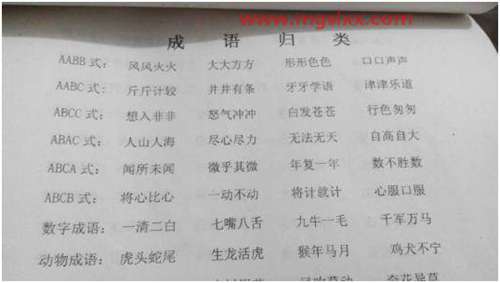 www.mgslxx.com
成语归类
AABB式： 风风火火 大大方方 形形色色 口口声声
AABC式： 斤斤计较 井井有条 牙牙学语 津津乐道
ABCC式： 想入非非 怒气冲冲 白发苍苍 行色匆匆
ABAC式： 人山人海 尽心尽力 无法无天 自高自大
ABCA式： 闻所未闻 微乎其微 年复一年 数不胜数
ABCB式： 将心比心 一动不动 将计就计 心服口服
数字成语： 一清二白 七嘴八舌 九牛一毛 千军万马
动物成语： 虎头蛇尾 生龙活虎 猴年马月 鸡犬不宁